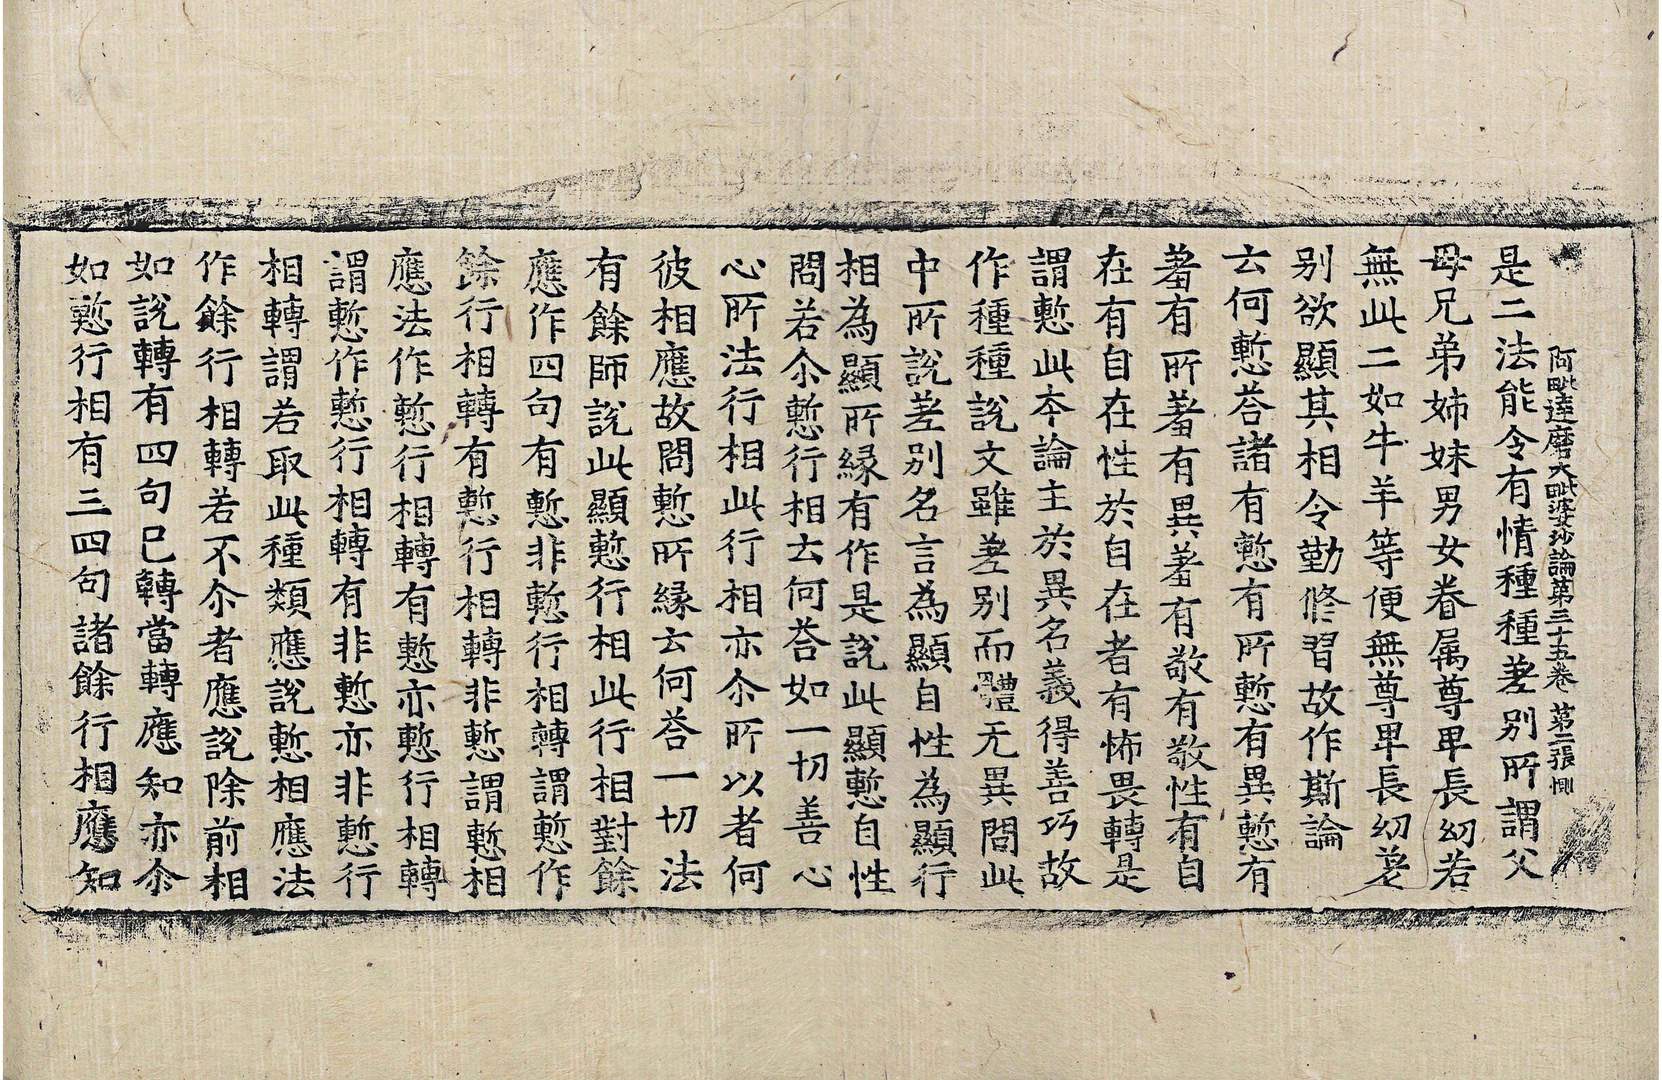 阿毗達磨大毗婆沙論第三十五卷 第二張 惻
是二法能令有情種種差別所謂父
母兄弟姉妹男女眷属尊卑長幼若
無此二如牛羊等便無尊卑長幼差
別欲顯其相令勤修習故作斯論
云何慙荅諸有慙有所慙有異慙有
羞有所羞有異羞有敬有敬性有自
在有自在性於自在者有怖畏轉是
謂慙此本論主於異名義得善巧故
作種種說文雖差別而體无異問此
中所說差別名言為顯自性為顯行
相為顯所緣有作是說此顯慙自性
問若尒慙行相云何荅如一切善心
心所法行相此行相亦尒所以者何
彼相應故問慙所緣云何荅一切法
有餘師說此顯慙行相此行相對餘
應作四句有慙非慙行相轉謂慙作
餘行相轉有慙行相轉非慙謂慙相
應法作慙行相轉有慙亦慙行相轉
謂慙作慙行相轉有非慙亦非慙行
相轉謂若取此種類應說慙相應法
作餘行相轉若不尒者應說除前相
如說轉有四句已轉當轉應知亦尒
如慙行相有三四句諸餘行相應知